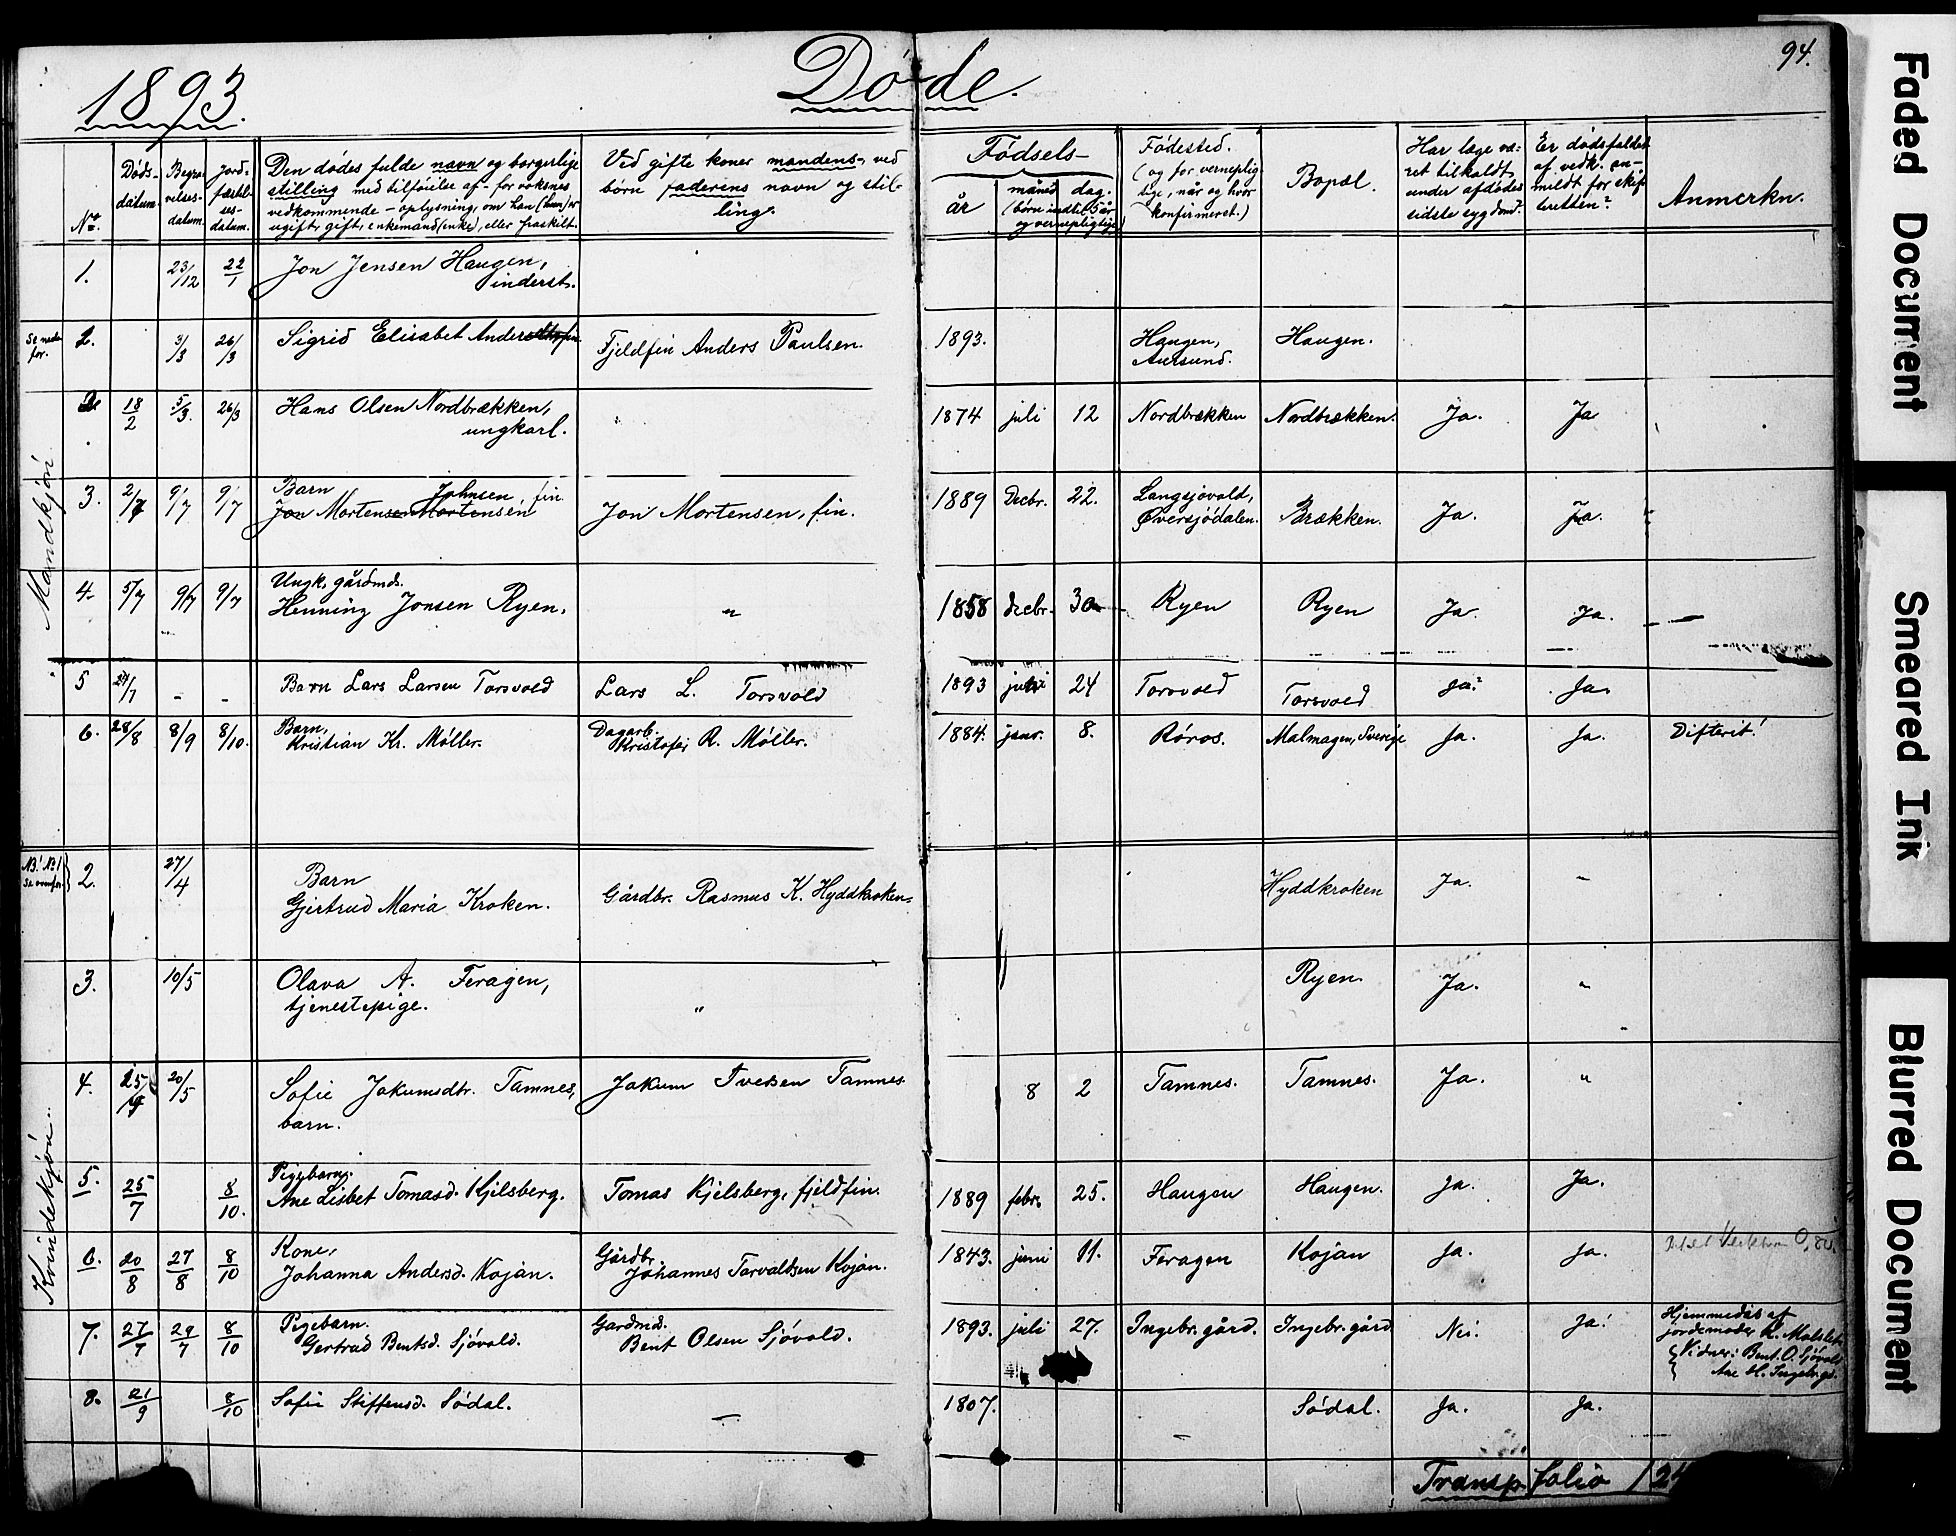 94.
1893.
Døde.
Nº.
Døds-
datum.
Begra-
velses-
datum.
Jord-
fæstel-
ses-
datum.
Den dødes fulde navn og borgerlige
stilling med tilføielse af - for voksnes
vedkommende - oplysning, om han (hun) er
ugift, gift, enkemand (enke), eller fraskilt.
Ved gifte koner mandens, ved
børn faderens navn og stil-
ling.
Fødsels-
år
måned dag.
(børn indtil 5 år
og vernepligtige)
Fødested.
(og for vernepli-
tige, når og hvor
konfirmeret.)
Bopæl.
Har læge væ-
ret tilkaldt
under afdødes
sidste sygdom?
Er dødsfaldet
af vedk. an-
meldt for skif-
teretten?
Anmerkn.
Mandkjøn
1. 23/12 22/1 Jon Jensen Haugen,
inderst.
Se neden-
for. 2. 3/3 26/3 Sigrid Elisabet Anders Fjeldfin Anders Paulsen. 1893. Haugen, Haugen.
Aursund.
2 18/2 5/3. 26/3 Hans Olsen Nordbrækken, " 1874 juli 12 Nordbrækken Nordbrækken. Ja. Ja
ungkarl.
3. 2/7 9/7 9/7 Barn Johnsen, fin
Jon Mortensen Mortensen Jon Mortensen, fin. 1889 Decbr. 22. Langsjøvold, Brækken. Ja. Ja.
Øversjødalen.
4. 5/7 9/7 9/7 Ungk, gårdmds.
Henning Jonsen Ryen. " 1858 decbr. 30 Ryen Ryen Ja. Ja.
5 24/7 - - Barn Lars Larsen Torsvold Lars L. Torsvold 1893 juli 24 Torsvold Torsvold Ja? Ja.
6. 28/8 8/9 8/10. Barn, Dagarb.
Kristian Kr. Møller. Kristofer R. Møller. 1884. janr. 8. Røros. Malmagen, Sverige Ja. Ja. Difterit!
Kvindekjøn.
NB! No 1
Se ovenfor. 2. 27/4 Barn
Gjertrud Maria Kroken. Gårdbr. Rasmus K. Hyddkroken. Hyddkroken Ja. "
3. 10/5 Olava A. Feragen, " Ryen. Ja. "
tjenestepige.
4. 25/4 20/5 Sofie Jakumsdtr. Tamnes, Jakum Iversen Tamnes 8 2 Tamnes. Tamnes. Ja. "
barn.
5. 25/7 8/10. Pigebarn,
Ane Lisbet Tomasd. Kjelsberg. Tomas Kjelsberg, fjeldfin. 1889 febr. 25. Haugen Haugen. Ja. Ja.
6. 20/8 27/8 8/10 Kone, Gårdbr.
Johanna Andersd. Kojan. Johannes Torvaldsen Kojan. 1843. juni 11. Feragen Kojan Ja. Ja.
7. 27/7 29/7 8/10 Pigebarn. Gardmd.
Gertrud Bentsd. Sjøvold. Bent Olsen Sjøvold. 1893. juli 27. Ingebr. gård. Ingebr. gård Nei. Ja! Hjemmedøb af
jordemoder K.
Vidner: Bent O. Sjøvold
Ane H. Ingebr.gd.
8. 21/9 8/10 Sofie Steffensd. Sødal. — 1807. Sødal. Ja. Ja.
Transp. folio 124
Faded Document
Smeared Ink
Blurred Document